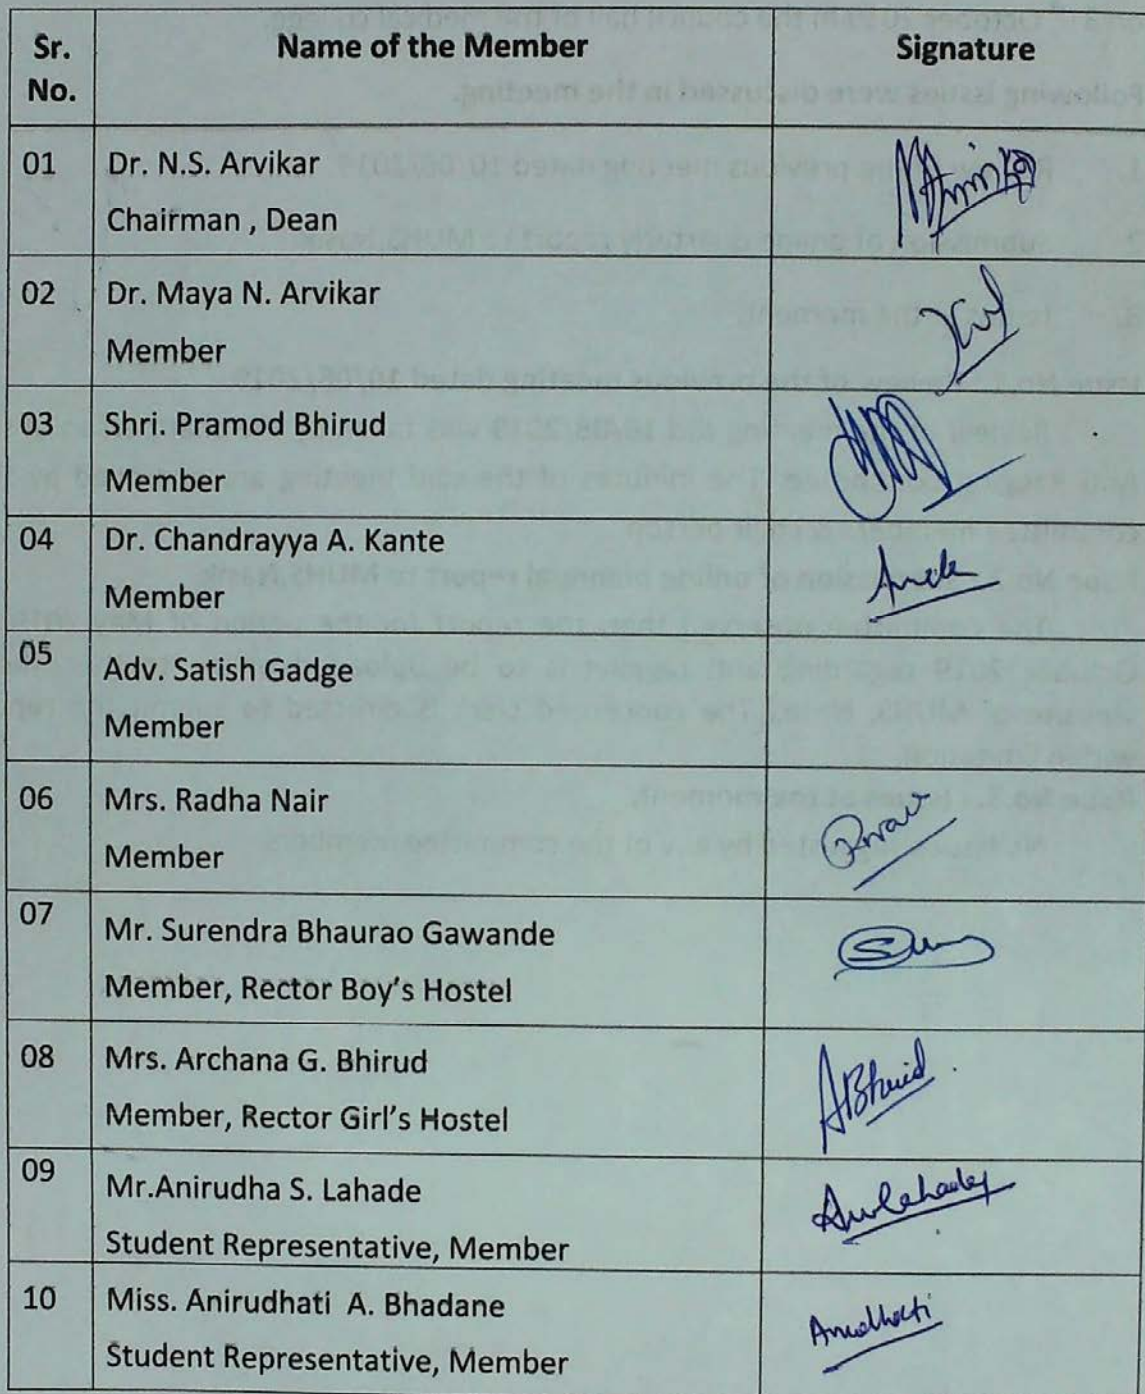 Sr.
No.
Name of the Member
Signature
01
Dr. N.S. Arvikar
Chairman , Dean
02
Dr. Maya N. Arvikar
Member
03
Shri. Pramod Bhirud
Member
04
Dr. Chandrayya A. Kante
Member
05
Adv. Satish Gadge
Member
06
Mrs. Radha Nair
Member
07
Mr. Surendra Bhaurao Gawande
Member, Rector Boy's Hostel
08
Mrs. Archana G. Bhirud
Member, Rector Girl's Hostel
ABhirud
09
Mr.Anirudha S. Lahade
Student Representative, Member
10
Miss. Anirudhati A. Bhadane
Student Representative, Member